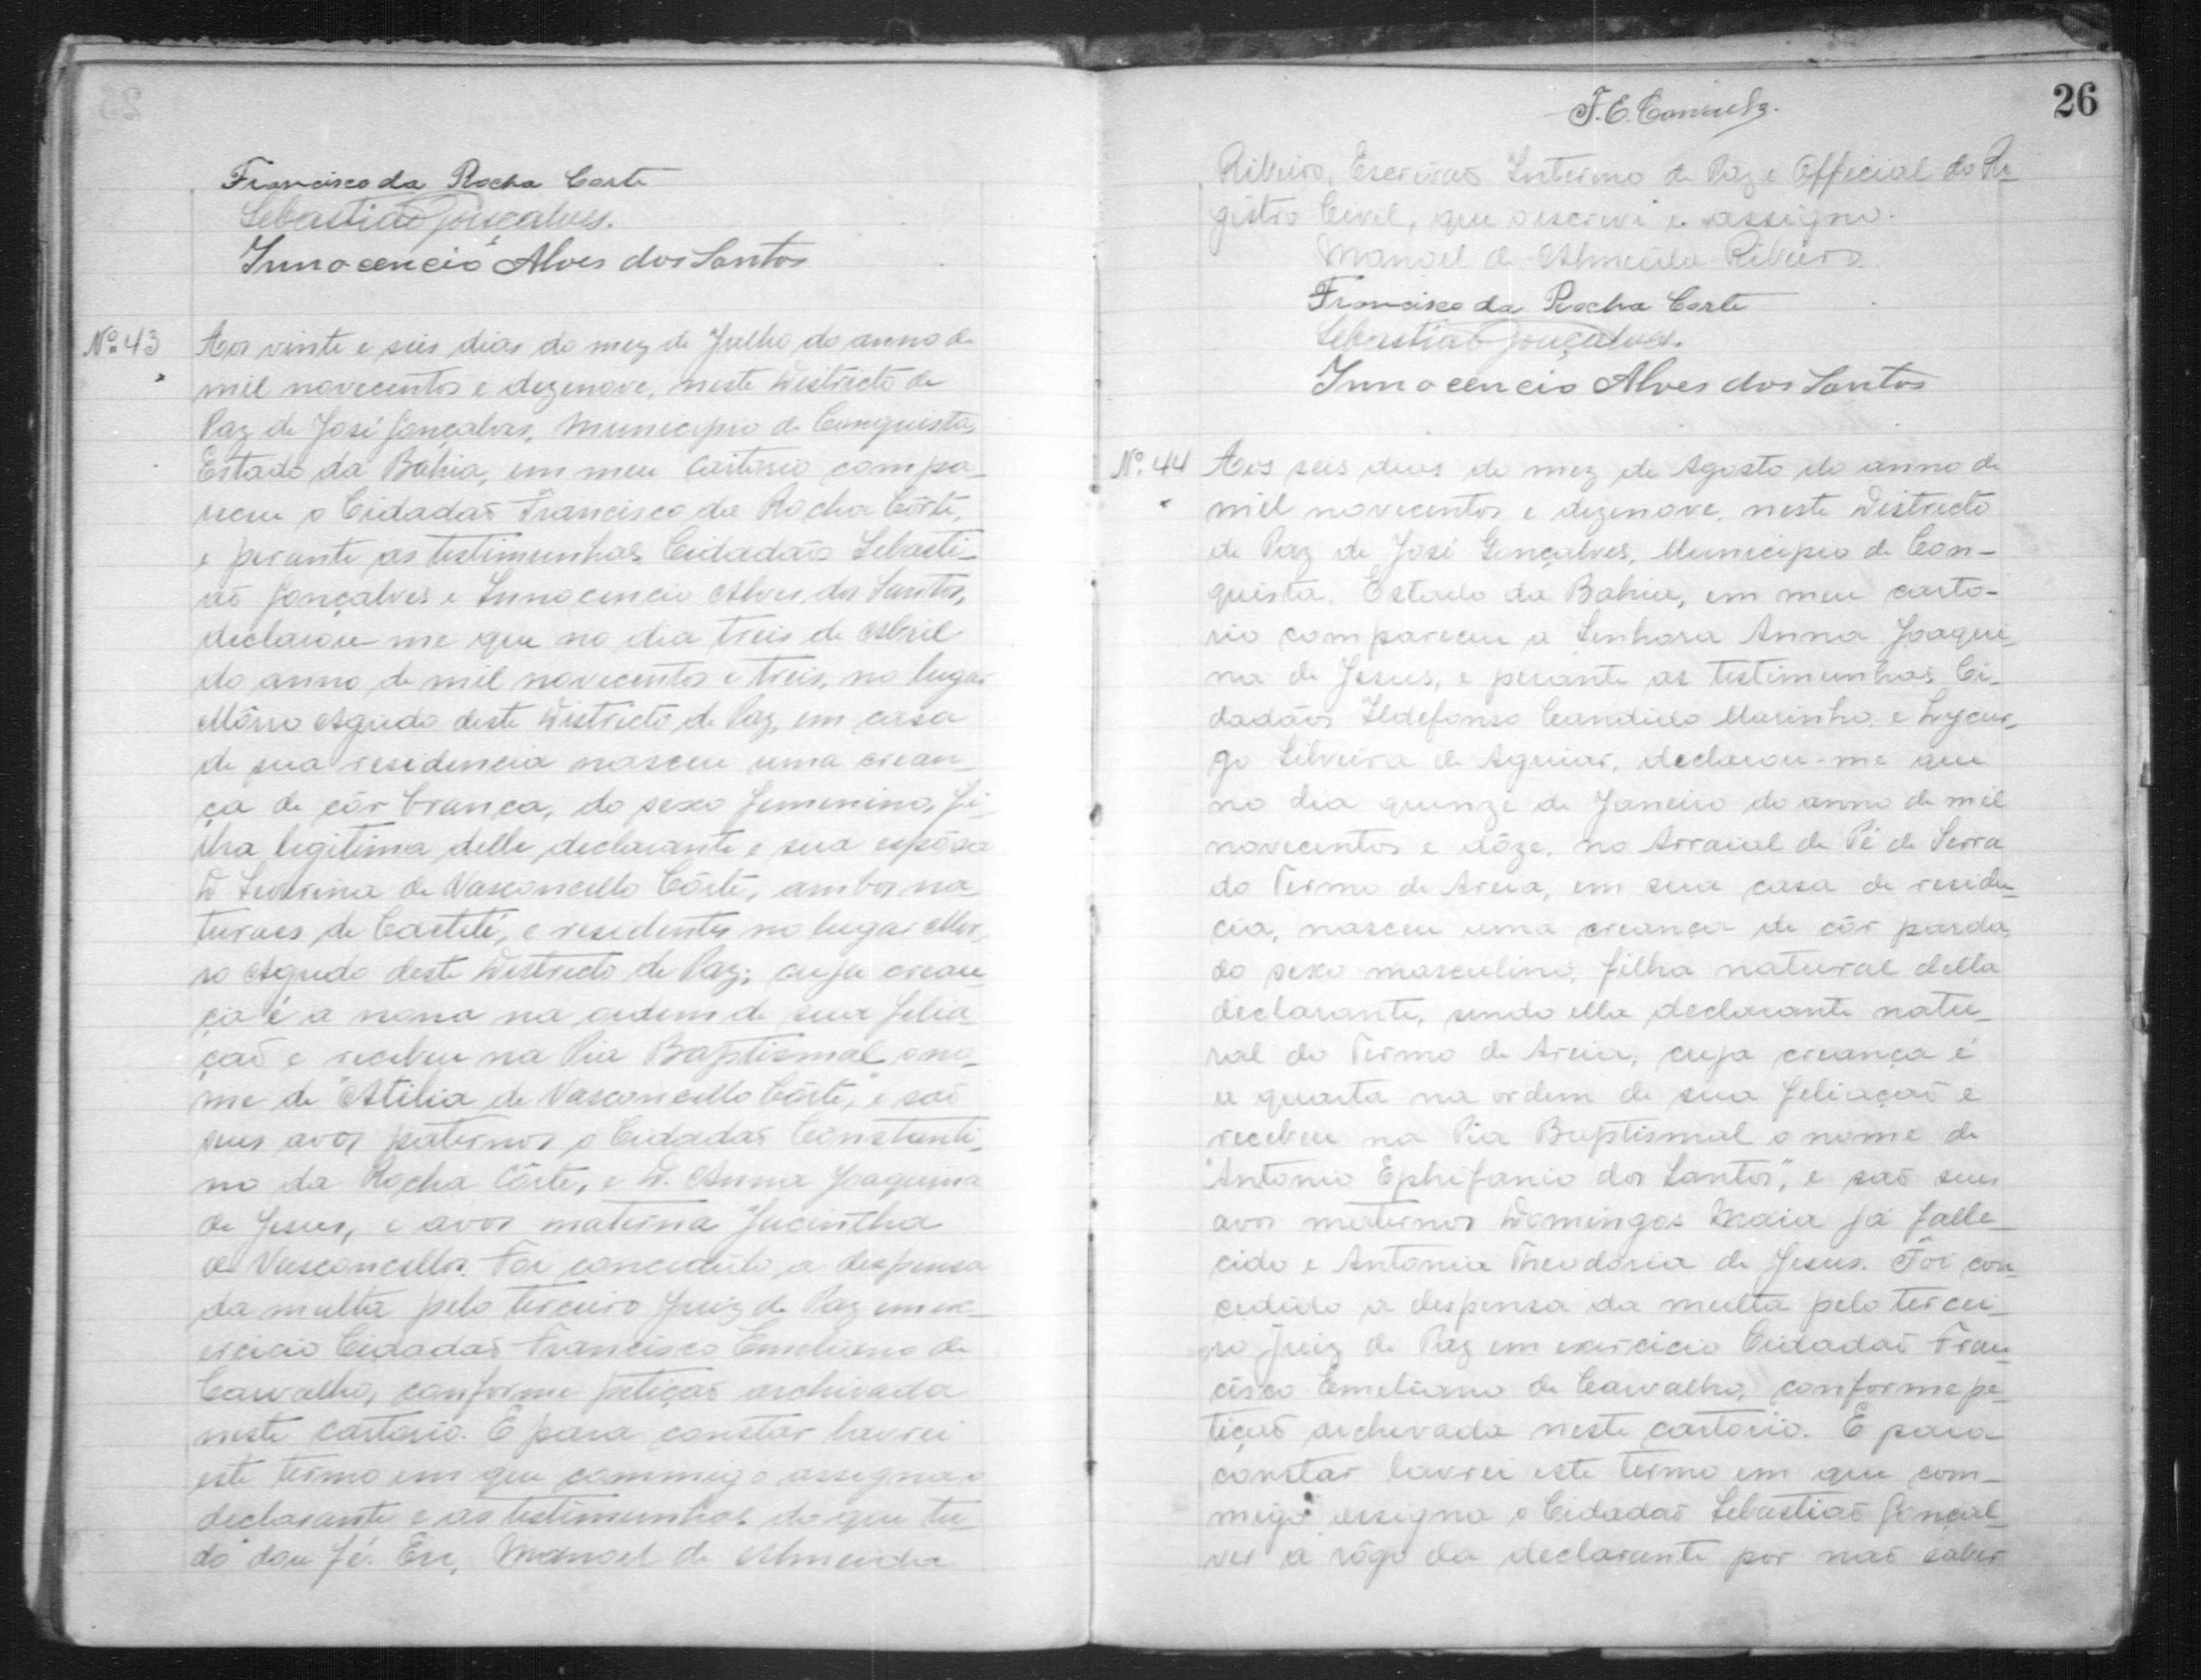 Francisco da Rocha Corte
Sebastião Gonçalves.
Innocencio Alves dos Santos
Nº 43
Aos vinte e seis dias do mez de Julho do anno de
mil novecentos e dezenove, neste Districto de
Paz de José Gonçalves, Municipio de Conquista,
Estado da Bahia, em meu cartorio compa-
receu o Cidadão Francisco da Rocha Côrte,
e perante as testimunhas Cidadãos Sebasti-
ão Gonçalves e Innocencio Alves dos Santos,
declarou-me que no dia treis de Abril
do anno de mil novecentos e treis, no lugar
Môrro Agudo deste Districto de Paz, em casa
de sua residencia nasceu uma crean-
ça de côr branca, do sexo femenino, fi-
lha legitima delle declarante e sua espôsa
D Severina de Vasconcello Côrte, ambos na-
turaes de Caetité, e residentes no lugar Mor-
ro Agudo deste Districto de Paz; cuja crean-
ça é a nona na ordem de sua felia-
ção e recebeu na Pia Baptismal o no-
me de "Atilia de Vasconcello Côrte," e são
seus avos paternos o Cidadão Constanti-
no da Rocha Côrte, e D. Anna Joaquina
de Jesus, e avos materna Jacintha
de Vasconcellos. Foi concedido a despensa
da multa pelo terceiro Juiz de Paz em ex-
ercicio Cidadão Francisco Emeliano de
Carvalho, conforme petição archivada
neste cartorio. E para constar lavrei
este termo em que commigo assigna o
declarante e as testimunhas do que tu-
do dou fé. Eu, Manoel de Almeida
26
Ribeiro, Escrivão Interino de Paz e Official do Re-
gistro Cevel, que o escrevi e assigno.
Manoel de Almeida Ribeiro
Francisco da Rocha Corte
Sebastião Gonçalves.
Innocencio Alves dos Santos
Nº. 44
Aos seis dias do mez de Agosto do anno de
mil novecentos e dezenove, neste Districto
de Paz de José Gonçalves, Municipio de Con-
quista, Estado da Bahia, em meu carto-
rio compareceu a Senhora Anna Joaqui-
na de Jesus, e perante as testimunhas Ci-
dadãos Ildefonso Candido Marinho e Lycur-
go Silveira de Aguiar, declarou-me que
no dia quinze de Janeiro do anno de mil
novecentos e dôze, no Arraial de Pé de Serra
do Termo de Areia, em sua casa de residen-
cia, nasceu uma creança de côr parda,
do sexo masculino, filha natural della
declarante, sendo ella declarante natu-
ral do Termo de Areia, cuja creança é
a quarta na ordem de sua feliação e
recebeu na Pia Baptismal o nome de
"Antonio Ephifanio dos Santos", e são seus
avos maternos Domingos Maia já falle-
cido e Antonia Theodoria de Jesus. Foi con-
cedido a despensa da multa pelo tercei-
ro Juiz de Paz em exercicio Cidadão Fran-
cisco Emeliano de Carvalho, conforme pe-
tição archevada neste cartorio. E para
constar lavrei este termo em que com-
migo assigna o Cidadão Sebastião Gonçal-
ves a rôgo da declarante por não saber